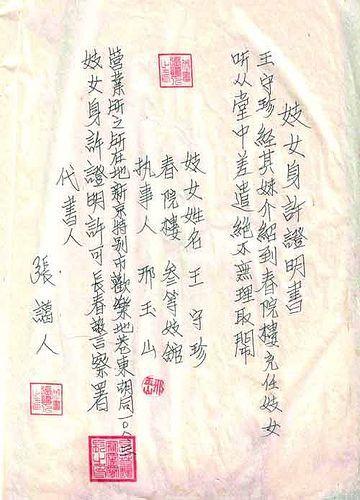 妓女身許證明書
王守珍經其妹介紹到春院樓充任妓女
听从堂中差遣絕不無理取鬧
妓女姓名 王守珍
春院樓 叁等妓館
执事人 邢玉山
營業所之所在地新京特别市歡樂地巷東胡同
妓女身許證明許可 長春警察署
代書人 張 人